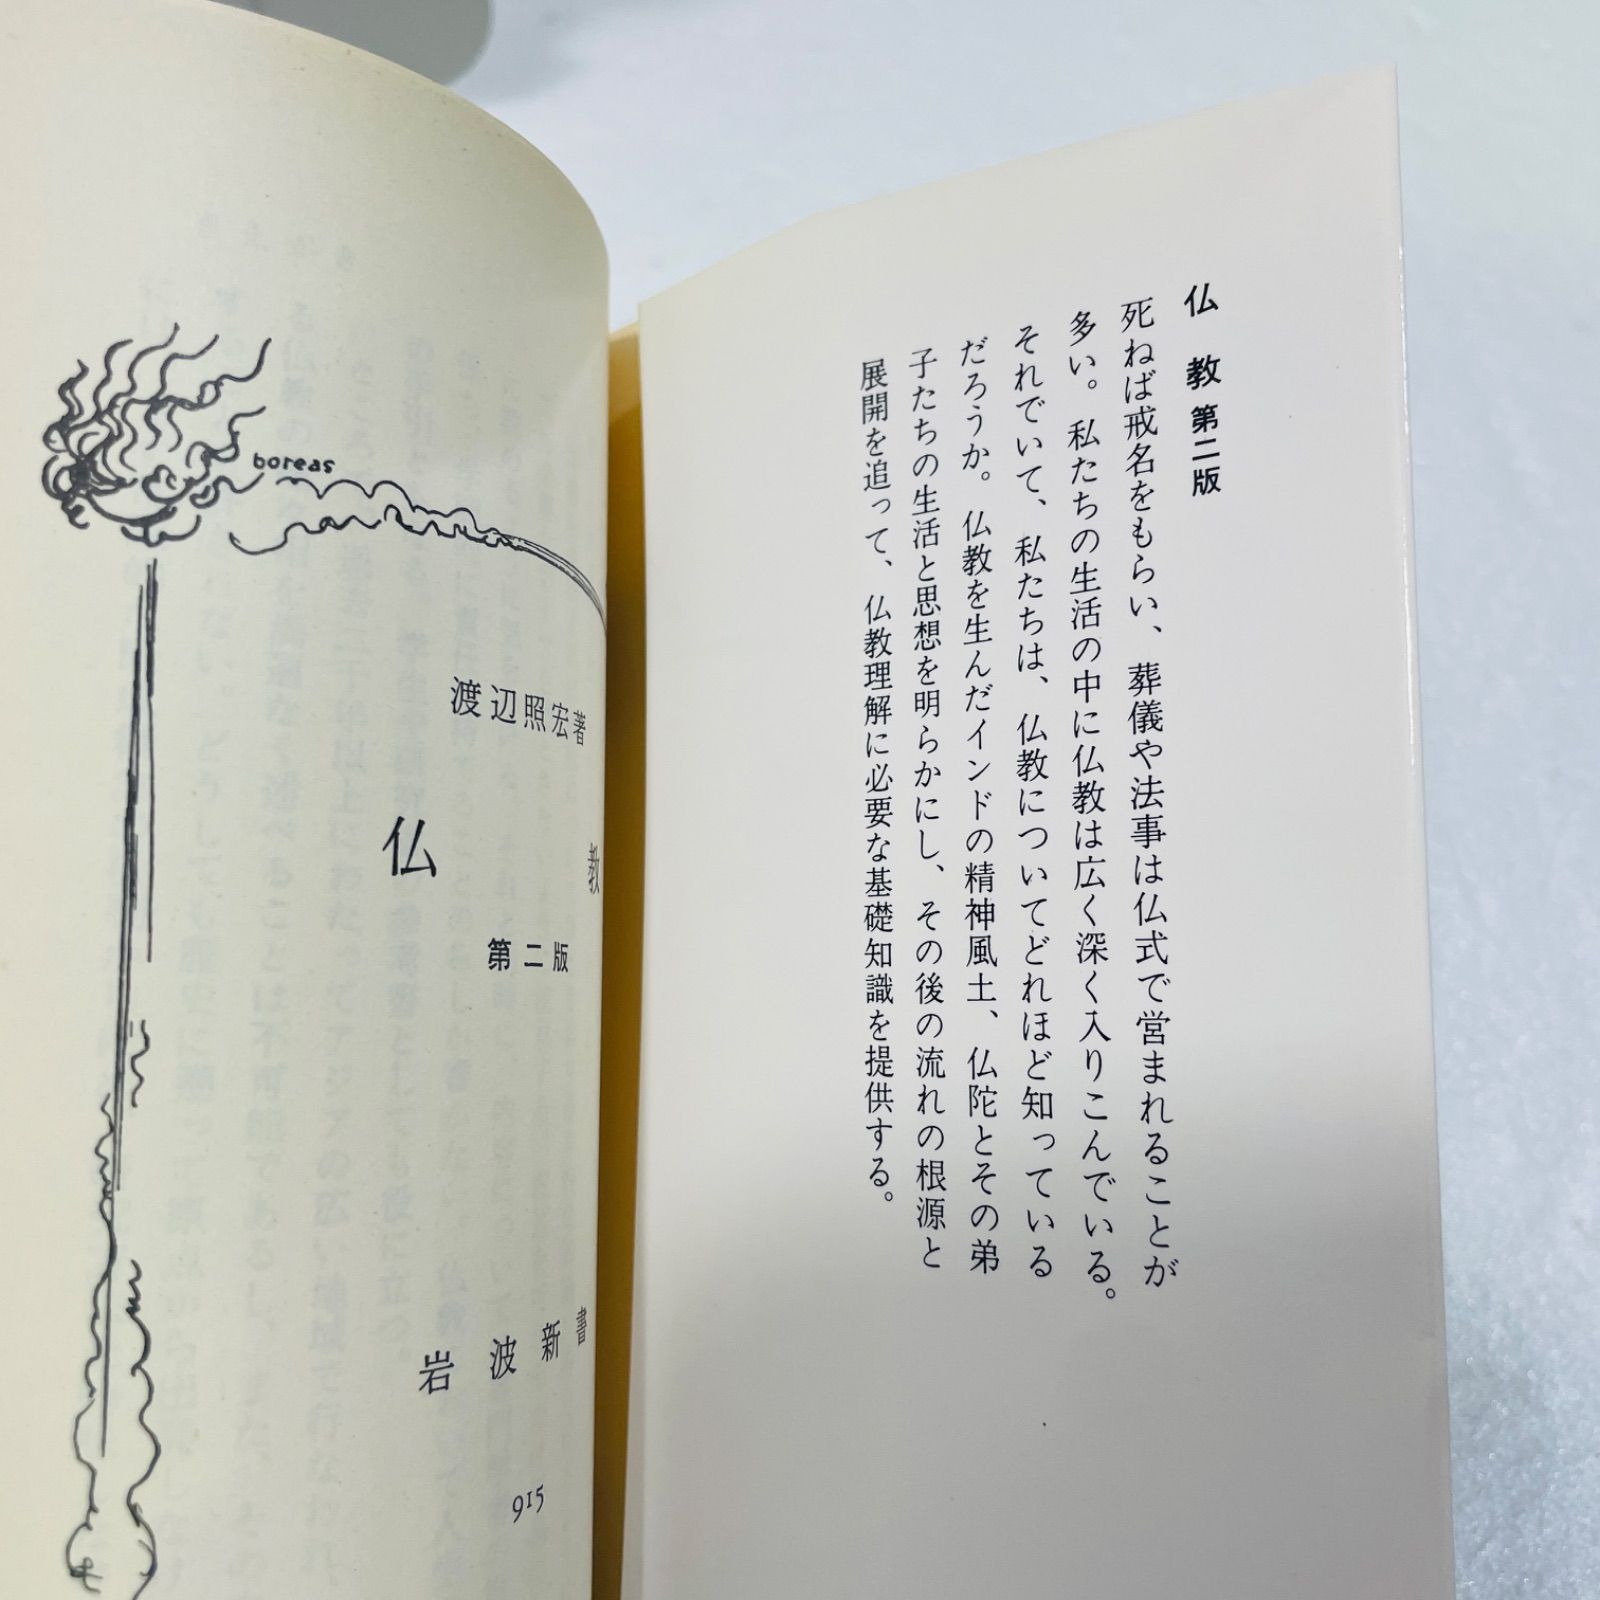 仏教 第二版
死ねば戒名をもらい、葬儀や法事は仏式で営まれることが
多い。私たちの生活の中に仏教は広く深く入りこんでいる。
それでいて、私たちは、仏教についてどれほど知っている
だろうか。仏教を生んだインドの精神風土、仏陀とその弟
子たちの生活と思想を明らかにし、その後の流れの根源と
展開を追って、仏教理解に必要な基礎知識を提供する。
boreas
渡辺照宏著
仏教
第二版
岩波新書
915